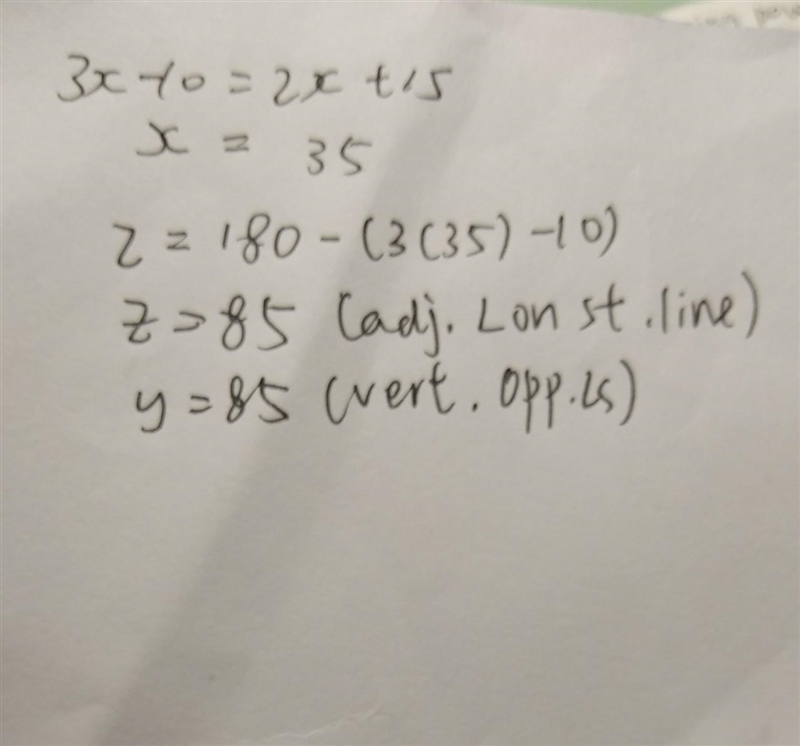 3x-10 = 2x +15
x = 35
z = 180 - (3(35) -10)
z = 85 (adj. ∠ on st. line)
y = 85 (vert. opp. ∠s)